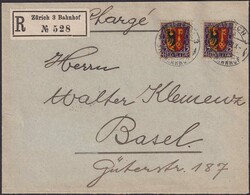 Chargé
Zürich 3 Bahnhof
R № 528
Herrn
Walter Klemenz
Basel.
Güterstr. 187